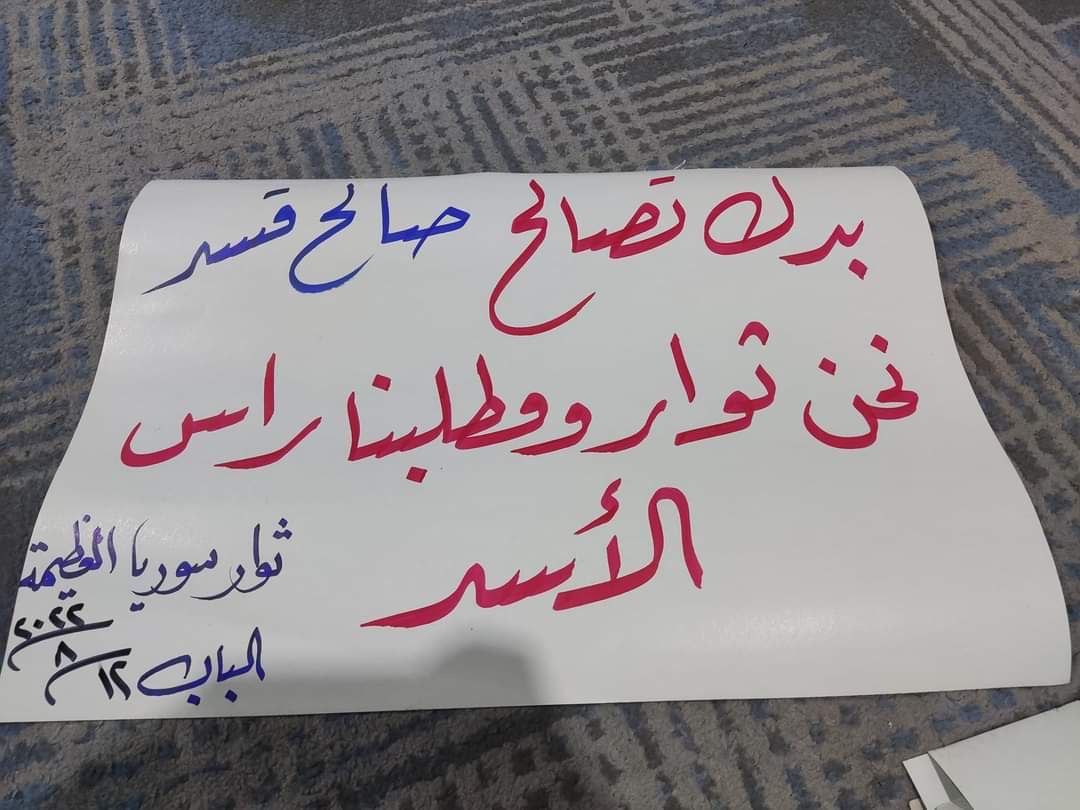 بدك تصالح صالح قسد
نحن ثوار ومطلبنا راس
الأسد
ثوار سوريا العظيمة
الباب ١٢/٨/٢٠٢٢